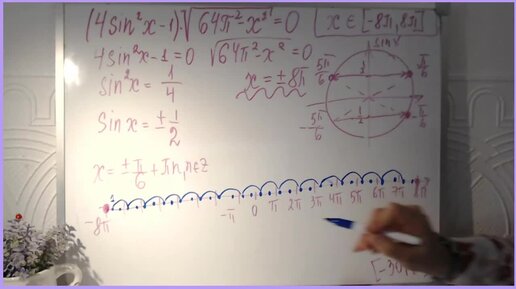 (4sin²x-1)·√64π²-x²=0
x∈[-8π,8π]
4sin²x-1=0 √64π²-x²=0
sin²x=1/4
x=±8π
sinx=±1/2
x=±π/6+πn,n∈Z
sin x
5π/6
π/6
1/2
-5π/6
-π/6
-8π -π 0 π 2π 3π 4π 5π 6π 7π 8π